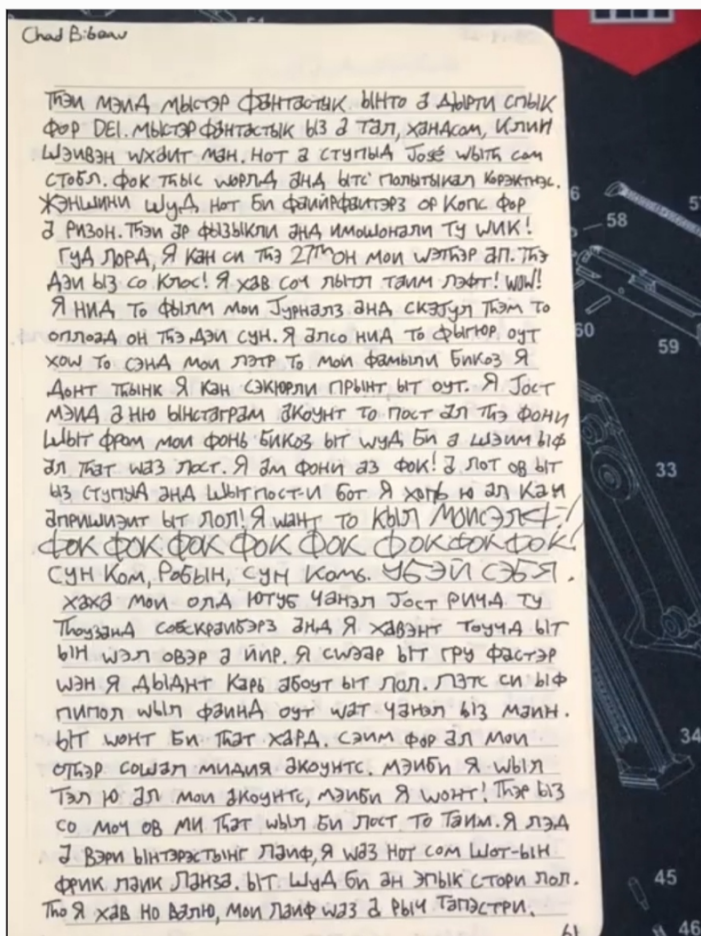 Chad Bibeau
Тhэи мэид мыстэр фантастык ынто а дырти спык
фор DEI. Мыстэр фантастык ыз а тал, хандсом, клин
шэивэн wхаит ман. Нот а ступыд José wыth сом
стобл. Фок thыс wорлд анд ытс' полытыкал корэктнэс.
Жэншини шуд нот би фаийрфаитэрз ор копс фор
а ризон. Тhэи ар фызыкли анд имошонали ту wик!
Гуд лорд, Я кан си thэ 27th он мои wэthэр ап. Тhэ
дэи ыз со клос! Я хав соч лытл таим лэфт! Wow!
Я нид то фылм мои Jурналз анд скэдул thэм то
оплоад он thэ дэи сун. Я алсо нид то фыгюр оут
хоw то сэнд мои лэтр то мои фамыли бикоз Я
донт thынк Я кан сэкюрли прынт ыт оут. Я Jост
мэид а ню ынстаграм акоунт то пост ал thэ фони
шыт фром мои фонь бикоз ыт wуд би а шэим ыф
ал thат wаз лост. Я ам фони аз фок! А лот ов ыт
ыз ступыд анд шытпост-и бот Я хопь ю ал кан
апришиэит ыт лол! Я wант то кыл моисэлф!
Фок фок фок фок фок фок фок фок!
Сун ком, Робын, сун комь. Убэй сэбя.
Хаха мои олд ютуб чанэл Jост ричд ту
thоузанд собскраибэрз анд Я хавэнт тоучд ыт
ын wэл овэр а йир. Я сwэар ыт гру фастэр
wэн Я дыднт карь абоут ыт лол. Лэтс си ыф
пипол wыл фаинд оут wат чанэл ыз маин.
Ыт wонт би thат хард. Сэим фор ал мои
оthэр сошал мидия акоунтс. Мэиби Я wыл
тэл ю ал мои акоунтс, мэиби Я wонт! Тhэр ыз
со моч ов ми thат wыл би лост то таим. Я лэд
а вэри ынтэрэстынг лаиф, Я wаз нот сом шот-ын
фрик лаик Ланза. Ыт шуд би ан эпык стори лол.
Тhо Я хав но валю, мои лаиф wаз а рыч тапэстри.
61
58
57
60
59
33
34
45
46